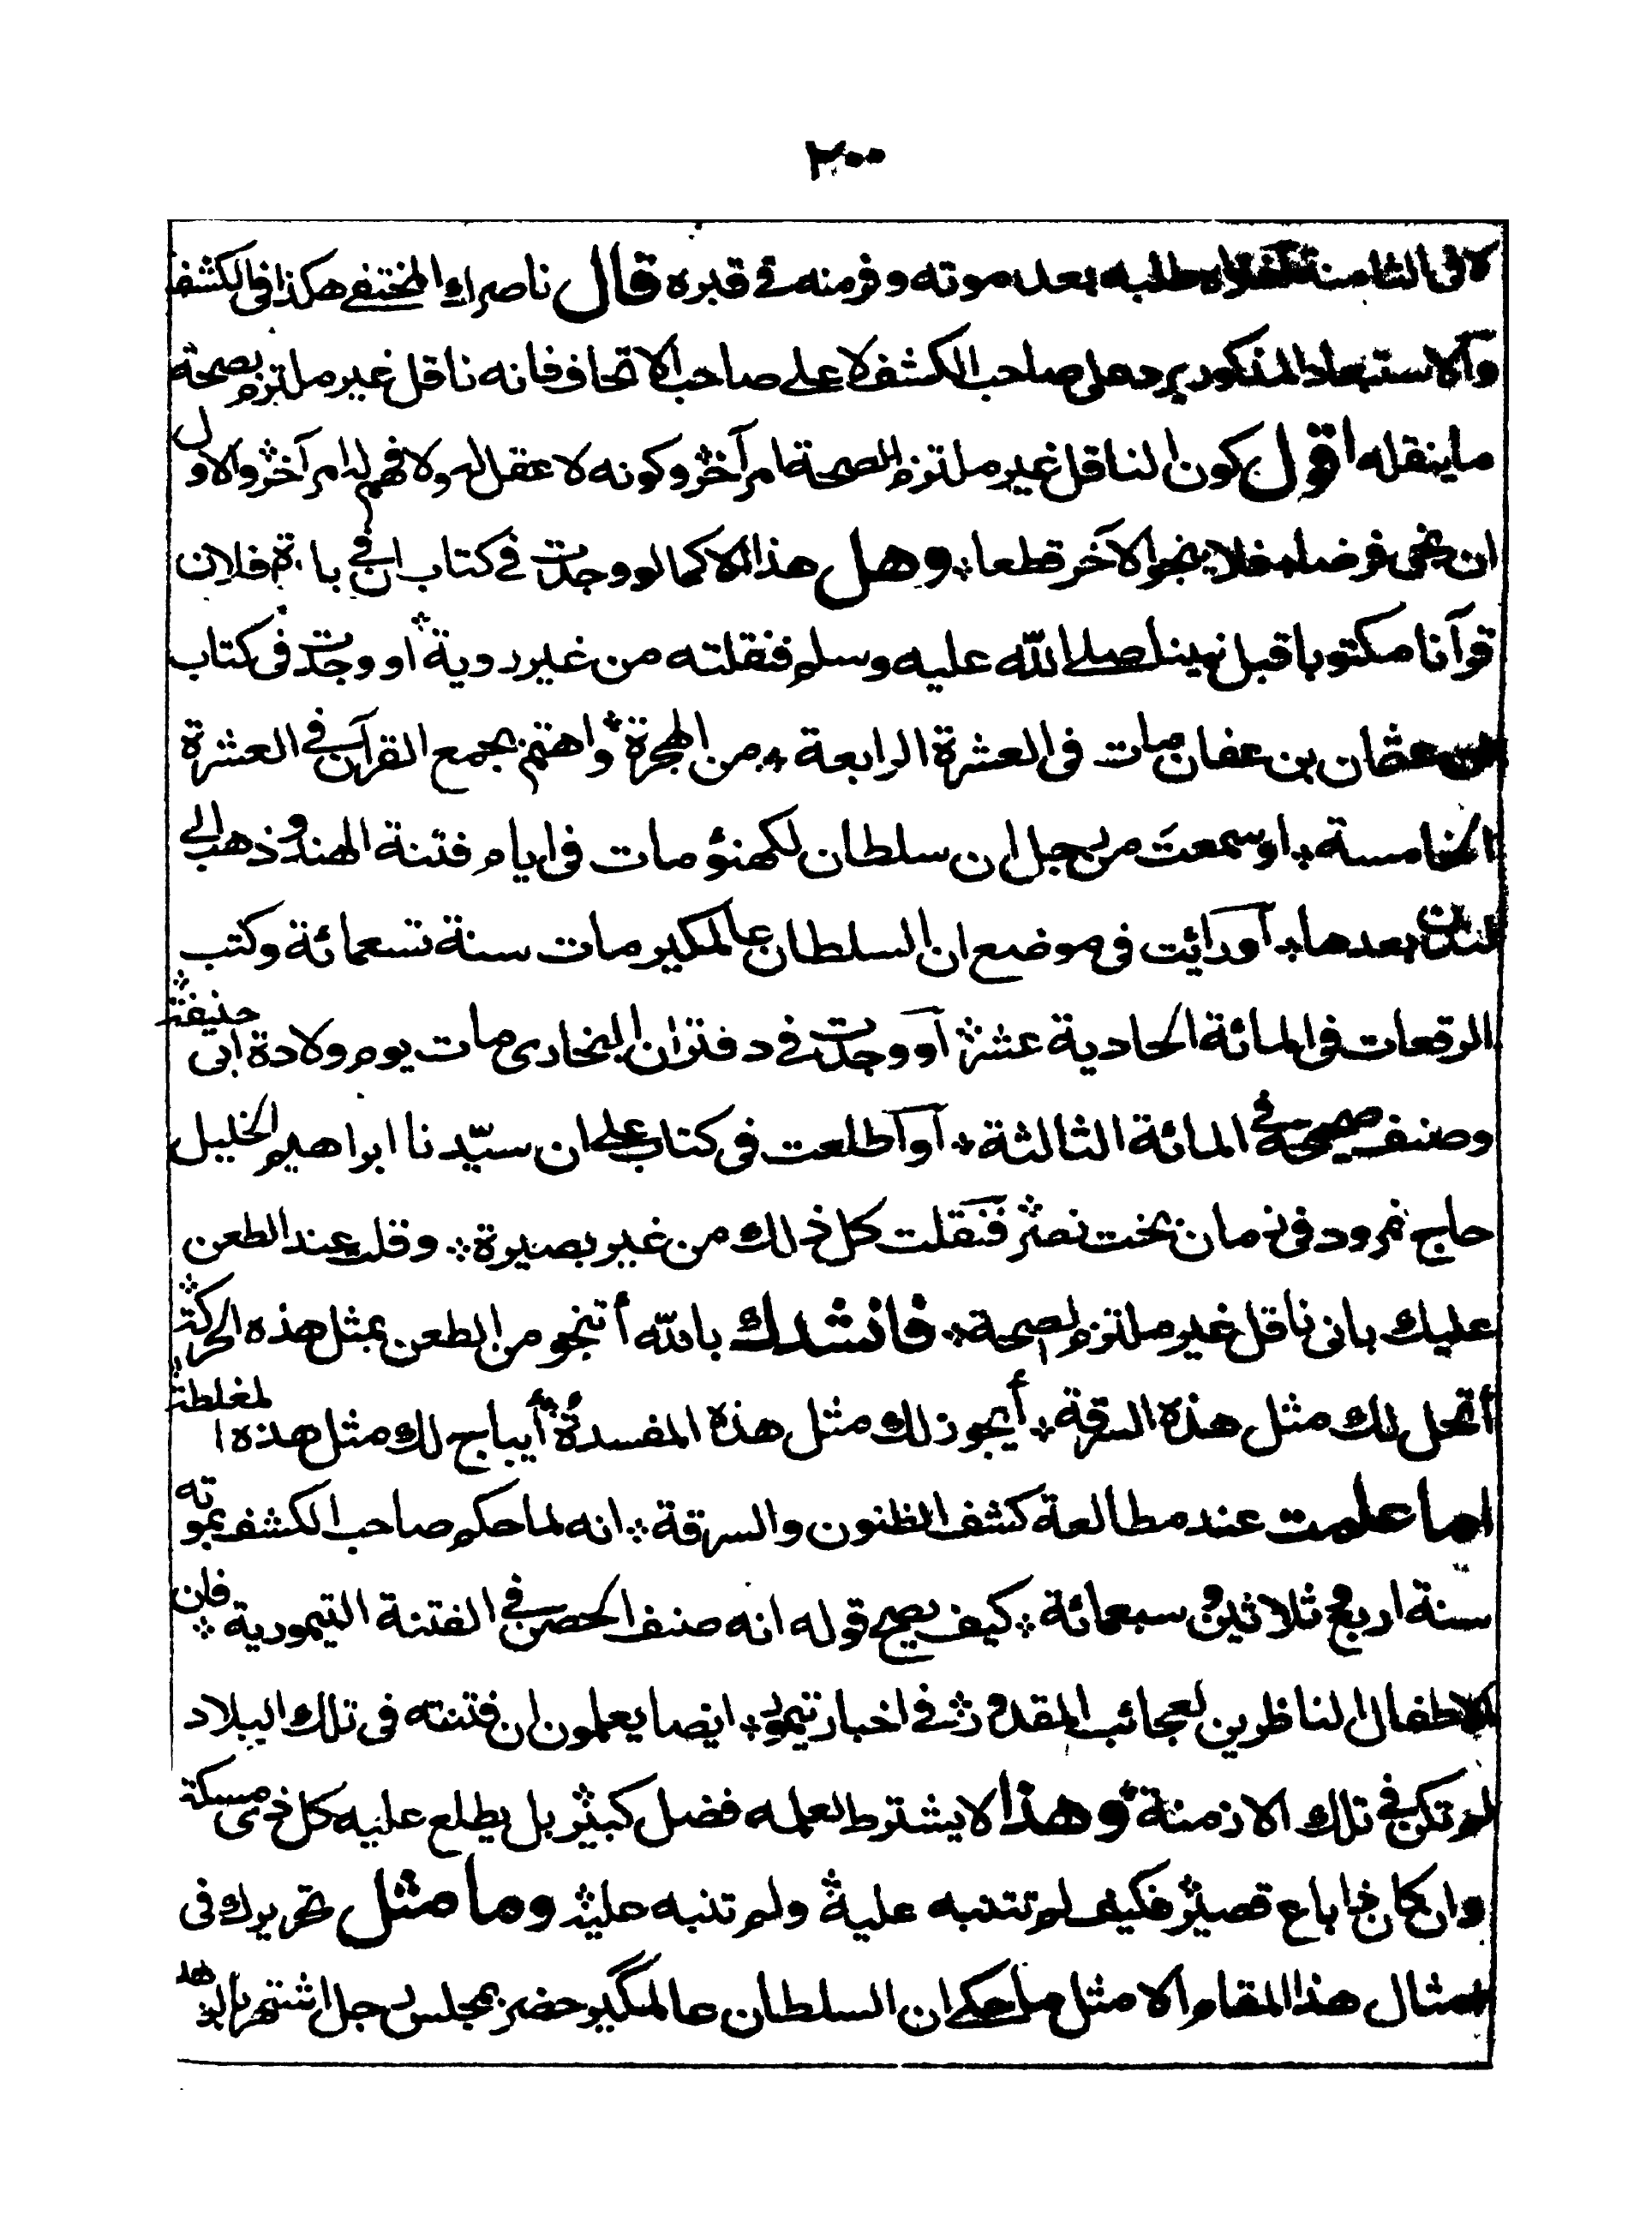 ٢٠٠
لا فى الثامنة طلبه بعد موته وفر منه فى قبره قال ناصراى المختفى هكذا فى الكشف
والاستبعاد المذكور يرد على صاحب الكشف لا على صاحب الاتحاف فانه ناقل غير ملتزم بصحة
ما ينقله اقول كون الناقل غير ملتزم الصحة امر آخر وكونه لا عقل له ولا فهم له امر آخر والاول
ان نجى فرضا فلا ينجو الآخر قطعا وهل هذا الا كما لو وجدت فى كتاب انى با فلان
قرآنا مكتوبا قبل نبينا صلى الله عليه وسلم فنقلته من غير روية او وجدت فى كتاب
عثمان بن عفان مات فى العشرة الرابعة من الهجرة واهتم بجمع القرآن فى العشرة
الخامسة او سمعت من رجل ان سلطان لكهنؤ مات فى ايام فتنة الهند وذهب الى
لندن بعدها اورائيت فى موضع ان السلطان عالمكير مات سنة تسعمائة وكتب
الرقعات فى المائة الحادية عشر او وجدت فى دفتر ان البخارى مات يوم ولادة ابى حنيفة
وصنف صحيحه فى المائة الثالثة او اطلعت فى كتاب على ان سيّدنا ابراهيم الخليل
حاج نمرود فى زمان بخت نصر فنقلت كل ذلك من غير بصيرة وقلت عند الطعن
عليك بانى ناقل غير ملتزم لصحة فانشدك بالله أتنجو من الطعن بمثل هذه الحركة
أتحل لك مثل هذه السرقة أيجوز لك مثل هذه المفسدة أيباح لك مثل هذه المغلطة
اما علمت عند مطالعة كشف الظنون والسرقة انه لما حكم صاحب الكشف بموته
سنة اربع وثلاثين وسبعمائة كيف يصح قوله انه صنف الحصن فى الفتنة التيمورية فان
الاطفال الناظرين لعجائب المقدور فى اخبار تيمور ايضا يعلمون ان فتنته فى تلك البلاد
لم تكن فى تلك الازمنة وهذا لا يشترط لعلمه فضل كبير بل يطلع عليه كل ذى مسكة
وان كان ذا باع قصير فكيف لم تتنبه عليه ولم تنبه عليه وما مثل تحريرك فى
امثال هذا المقام الا مثل ما حكى ان السلطان عالمگير حضر بمجلس رجل اشتهر بالزهد